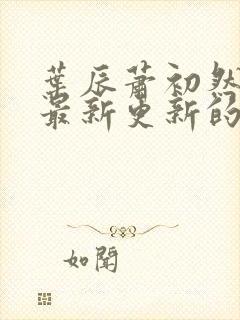 葉辰蕭初然
最新更新的
如聞